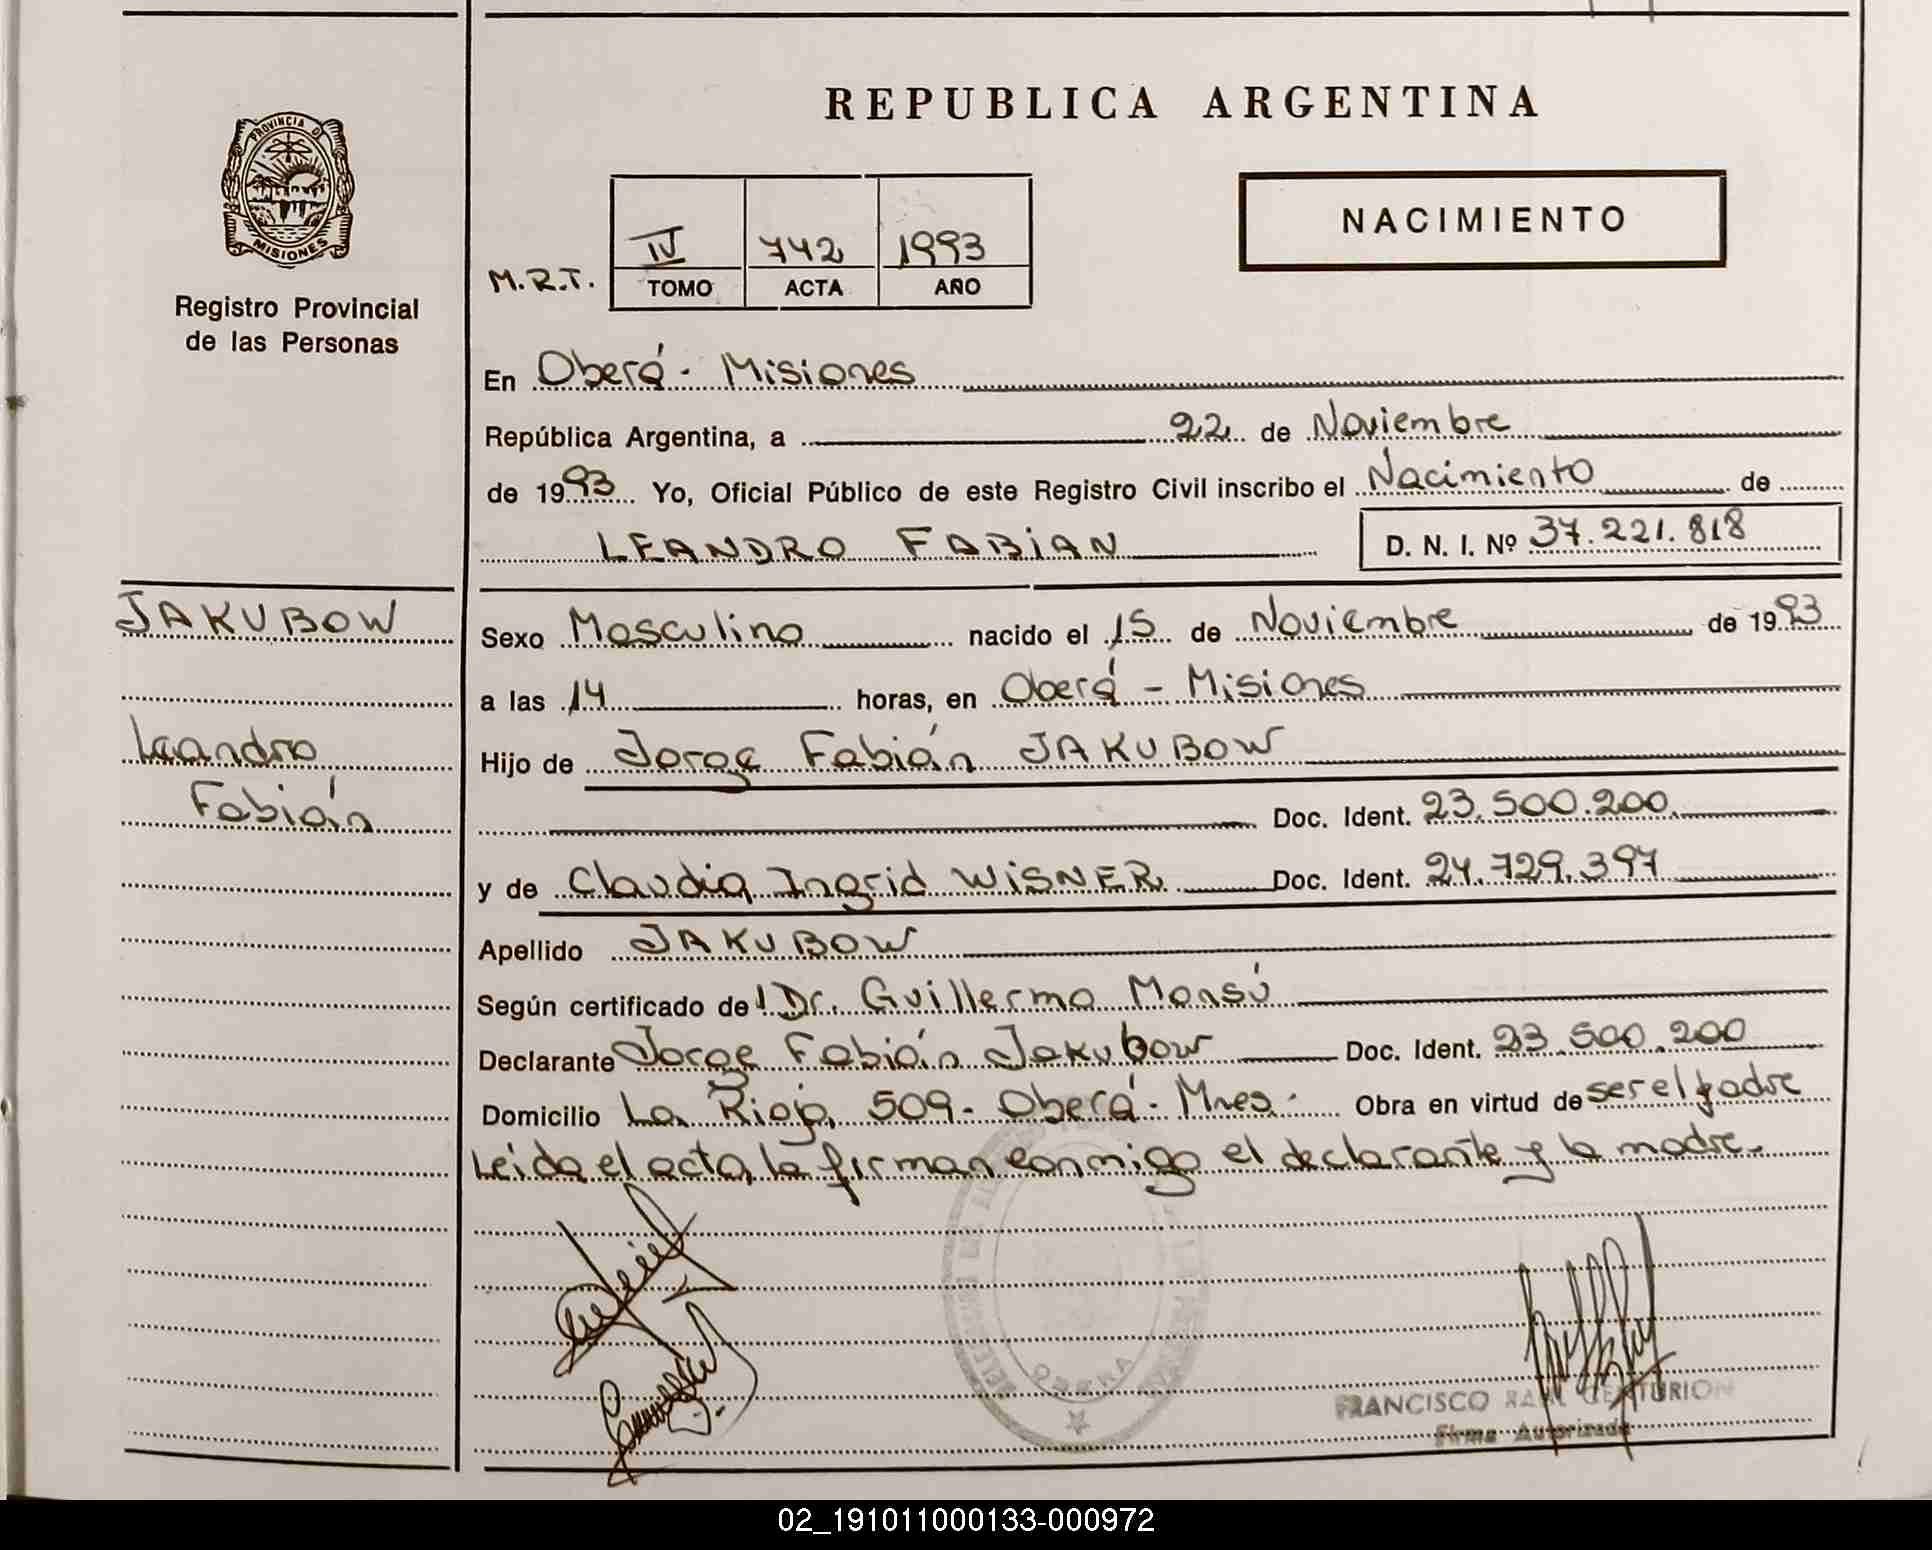 REPUBLICA ARGENTINA
PROVINCIA D
MISIONES
Registro Provincial
de las Personas
NACIMIENTO
M.R.T.
IV 742 1993
TOMO ACTA AÑO
En Oberá - Misiones
República Argentina, a 22 de Noviembre
de 1993 Yo, Oficial Público de este Registro Civil inscribo el Nacimiento de
LEANDRO FABIAN D. N. I. Nº 37.221.818
JAKUBOW
Leandro
Fabián
Sexo Masculino nacido el 15 de Noviembre de 1993
a las 14 horas, en Oberá - Misiones
Hijo de Jorge Fabián JAKUBOW
Doc. Ident. 23.500.200
y de Claudia Ingrid WISNER Doc. Ident. 24.729.397
Apellido JAKUBOW
Según certificado del Dr. Guillermo Monsú
Declarante Jorge Fabián Jakubow Doc. Ident. 23.500.200
Domicilio La Rioja 509 - Oberá - Mnes. Obra en virtud de ser el padre
Leida el acta, la firman conmigo el declarante y la madre.
OBERA
FRANCISCO RAUL CENTURION
Firma Autorizada
02_191011000133-000972